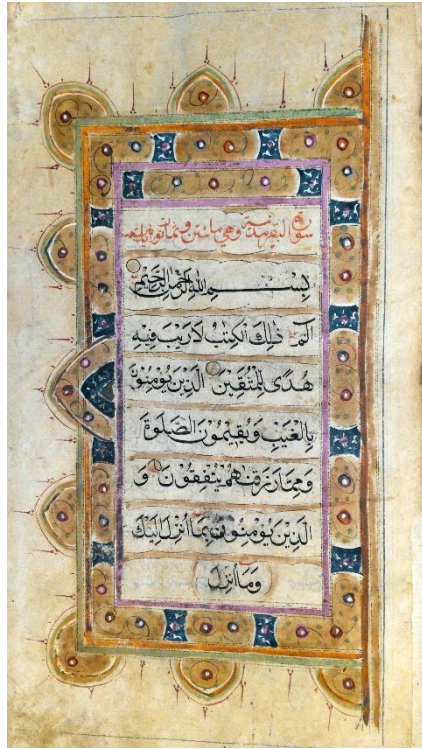 سورة البقر مدنية وهي مائتن وثمانون آية
بِسْمِ اللهِ الرَّحْمٰنِ الرَّحِيْمِ
الٓمٓ ذٰلِكَ الْكِتٰبُ لَارَيْبَ فِيْهِ
هُدًى لِلْمُتَّقِيْنَ الَّذِيْنَ يُؤْمِنُوْنَ
بِالْغَيْبِ وَيُقِيْمُوْنَ الصَّلٰوةَ
وَمِمَّا رَزَقْنٰهُمْ يُنْفِقُوْنَ وَ
الَّذِيْنَ يُؤْمِنُوْنَ بِمَا اُنْزِلَ اِلَيْكَ
وَمَا اُنْزِلَ